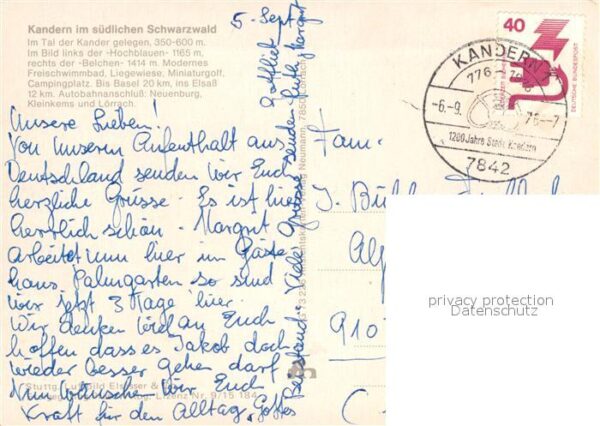 Kandern im südlichen Schwarzwald
Im Tal der Kander gelegen, 350-600 m.
Im Bild links der »Hochblauen« 1165 m,
rechts der »Belchen« 1414 m. Modernes
Freischwimmbad, Liegewiese, Miniaturgolf,
Campingplatz. Bis Basel 20 km, ins Elsaß
12 km. Autobahnanschluß: Neuenburg,
Kleinkems und Lörrach.
5. Sept.
Unsere Lieben!
Von unserem Aufenthalt aus
Deutschland senden wir Euch
herzliche Grüsse. Es ist hier
herrlich schön. Margrit
arbeitet nun hier im Gäste
haus Palmgarten so sind
wir jetzt 3 Tage hier.
Wir denken viel an Euch
hoffen dass es Jakob doch
wieder besser gehen darf.
Nun wünschen wir Euch
Kraft für den Alltag, Gottes
Beistand. Viele Grüsse senden Ruth Margrit
Gottlieb
Neumann, 7850 Lörrach
Stuttg. Luftbild Elsässer &
Lizenz Nr. 9/15 184
Fam.
J.
910
40
DEUTSCHE BUNDESPOST
KANDERN
776
-6.-9.
76.-7
1200 Jahre Stadt Kandern
7842
privacy protection
Datenschutz